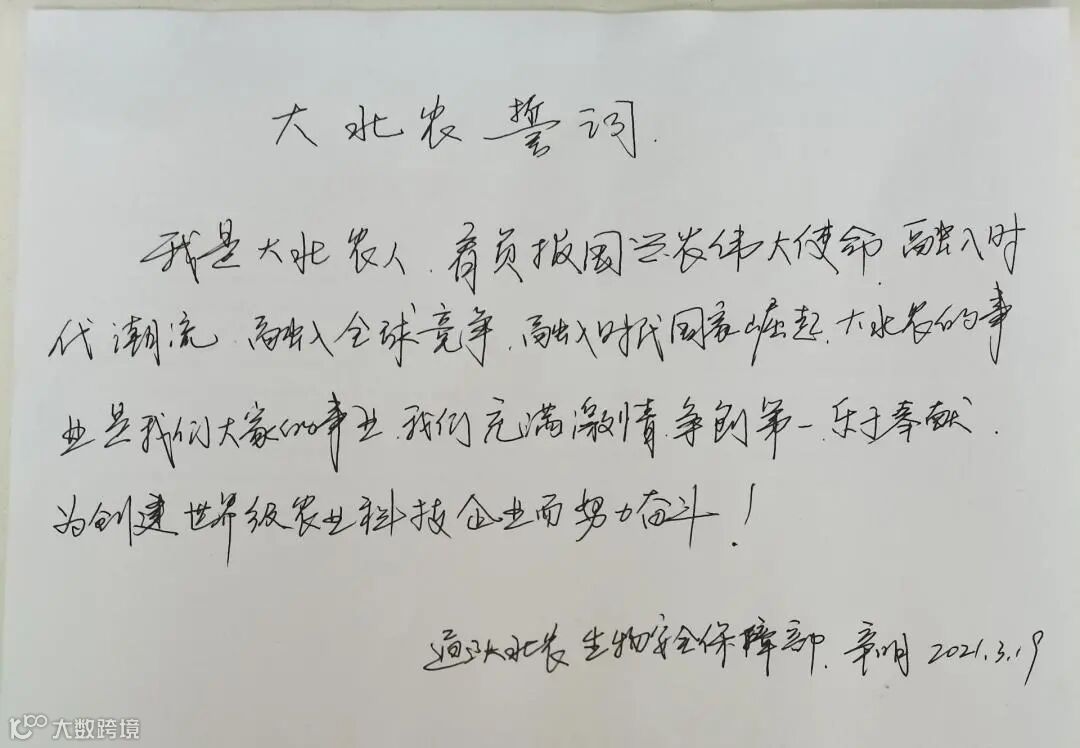 大北农誓词.
我是大北农人、肩负报国兴农伟大使命、融入时
代潮流、融入全球竞争、融入时代国家崛起、大北农的事
业是我们大家的事业、我们充满激情、争创第一、乐于奉献、
为创建世界级农业科技企业而努力奋斗！
通辽大北农生物安全保障部、章明 2021.3.19
大数跨境